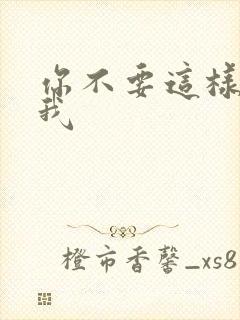 你不要這樣
我
橙市香馨_xs8